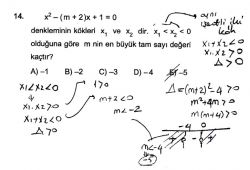 14. x² − (m + 2)x + 1 = 0
denkleminin kökleri x₁ ve x₂ dir. x₁ < x₂ < 0
olduğuna göre m nin en büyük tam sayı değeri
kaçtır?
A) −1 B) −2 C) −3 D) −4 E) −5
aynı
işaretli iki
kök
x₁+x₂<0
x₁.x₂>0
Δ>0
x₁<x₂<0
x₁.x₂>0
x₁+x₂<0
Δ>0
1>0
m+2<0
m<-2
Δ=(m+2)²-4>0
m²+4m>0
m(m+4)>0
-4 0
+ 0 - 0 +
m<-4
-5